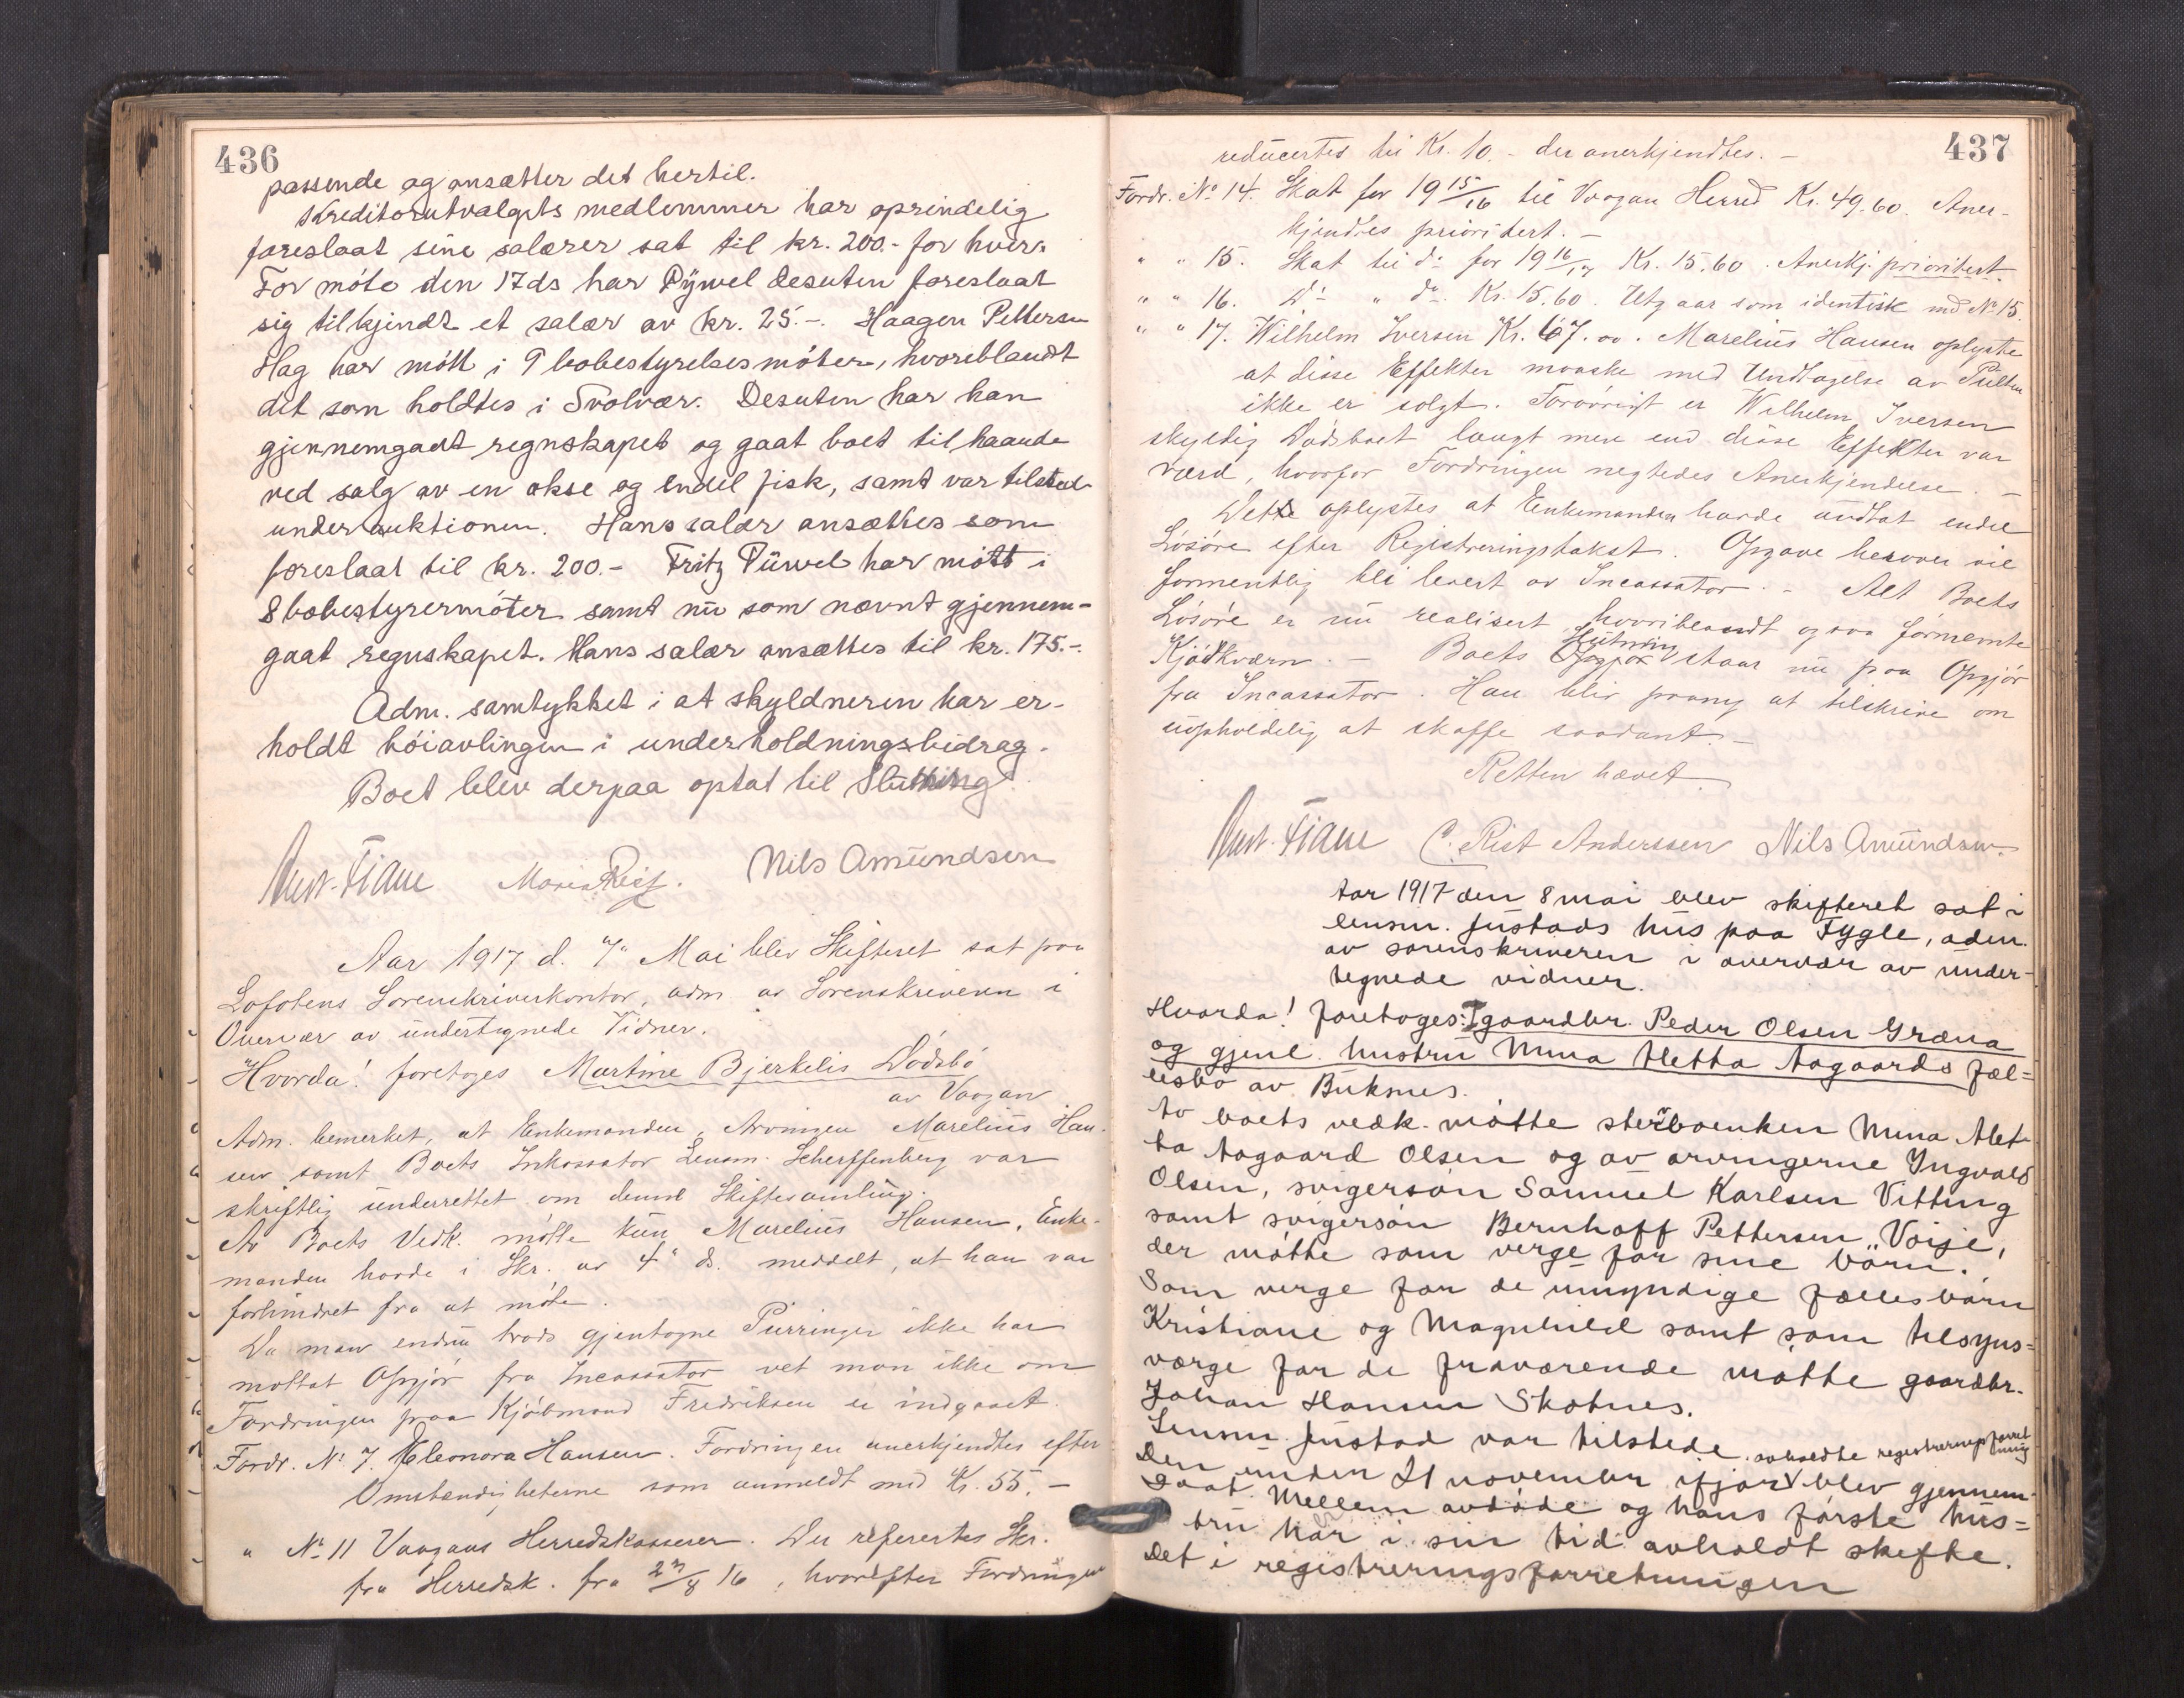 436
passende og ansætter det hertil.
Kreditorutvalgets medlemmer har oprindelig
foreslaat sine salærer sat til kr. 200.- for hver.
For møte den 17 ds har Pÿwel desuten foreslaat
sig tilkjendt et salær av kr. 25.-. Haagen Pettersen
Hag har møtt i 9 bobestyrelsesmøter, hvoriblandt
det som holdtes i Svolvær. Desuten har han
gjennemgaat regnskapet og gaat boet tilhaande
ved salg av en okse og endel fisk, samt var tilstede
under auktionen. Hans salær ansættes som
foreslaat til kr. 200.- Fritz Pürvel har møtt i
8 bobestyrermøter samt nu som nævnt gjennem-
gaat regnskapet. Hans salær ansættes til kr. 175.-.
Adm. samtykket i at skyldneren har er-
holdt høiavlingen i underholdningsbidrag.
Boet blev derpaa optat til Slutning.
Nils Amundsen
Aar 1917 d. 7" Mai blev Skifteret sat paa
Lofotens Sorenskriverkontor, adm av Sorenskriveren i
Overvær av undertegnede Vidner.
Hvorda! foretoges Martine Bjerkelis Dødsbo
av Vaagan
Adm. bemerket, at Enkemanden, Arvingen Marelius Han-
sen samt Boets Inkassator Lensm. Scherffenberg var
skriftlig underrettet om denne Skiftesamling.
Av Boets Vedk. møtte kun Marelius Hansen, Enke-
manden havde i Skr. av 4" ds. meddelt, at han var
forhindret fra at møte.
Da man endnu trods gjentagne Purringer ikke har
mottat Opgjør fra Incassator vet man ikke om
Fordringen paa Kjøbmand Fredriksen er indgaaet.
Fordr. No 7. Eleonora Hansen. Fordringen anerkjendtes efter
Omstændigheterne som anmeldt med Kr. 55.-
" No 11 Vaagans Herredskasserer. Der refereertes Skr.
fra Herredsk. fra 2 16, hvorefter Fordringen
437
reducertes til Kr. 10.- der anerkjendtes.-
Fordr. No 14. Skat for 19 15/16 til Vaagan Herred Kr. 49.60. Aner-
kjendtes prioritert.-
" " 15. Skat til do for 19 16/17 Kr. 15.60. Anerkj. prioritert.
" " 16. Do " do. Kr. 15.60. Utgaar som identisk med No 15.
" " 17. Wilhelm Iversen Kr. 67.oo. Marelius Hansen oplyste
at disse Effekter maaske med Undtagelse av Pulten
ikke er solgt. Forøvrigt er Wilhelm Iversen
skyldig Dødsboet langt mere end disse Effekter var
værd, hvorfor Fordringen negtedes Anerkjendelse.-
Dette oplystes at Enkemanden havde uttat endel
Løsøre efter Registreringstakst. Opgave herover vil
formentlig bli levert av Incassator.- Alt Boets
Løsøre er nu realisert hvoriblandt ogsaa førnevnte
Kjødkværn.- Boets Slutning staar nu paa Opgjør
fra Incassator. Han blir paany at tilskrive om
uopholdelig at skaffe saadant.-
Retten hævet.
C. Rist Anderssen Nils Amundsen.
Aar 1917 den 8 mai blev skifteret sat i
lensm. Justads hus paa Fygle, adm.
av sorenskriveren i overvær av under-
tegnede vidner.
Hvorda! foretoges: I gaardbr. Peder Olsen Græna
og gjenl. hustru Mina Aletta Aagaards fæl=
lesbo av Buksnes.
Av boets vedk. møtte sterboenken Mina Alet-
ta Aagaard Olsen og av arvingerne Ingvald
Olsen, svigersøn Samuel Karlsen Vitting
samt svigersøn Bernhoff Pettersen Voije,
der møtte som verge for sine børn.
Som verge for de umyndige fællesbørn
Kristiane og Magnhild samt som tilsyns=
værge for de fraværende møtte gaardbr.
Johan Hansen Skotnes.
Lensm. Justad var tilstede.
avholdte registreringsforret
ning
Den under 21 november ifjor blev gjennem-
gaat. Mellem avdøde og hans første hus=
tru har i sin tid avholdt skifte.
Det i registreringsforretningen